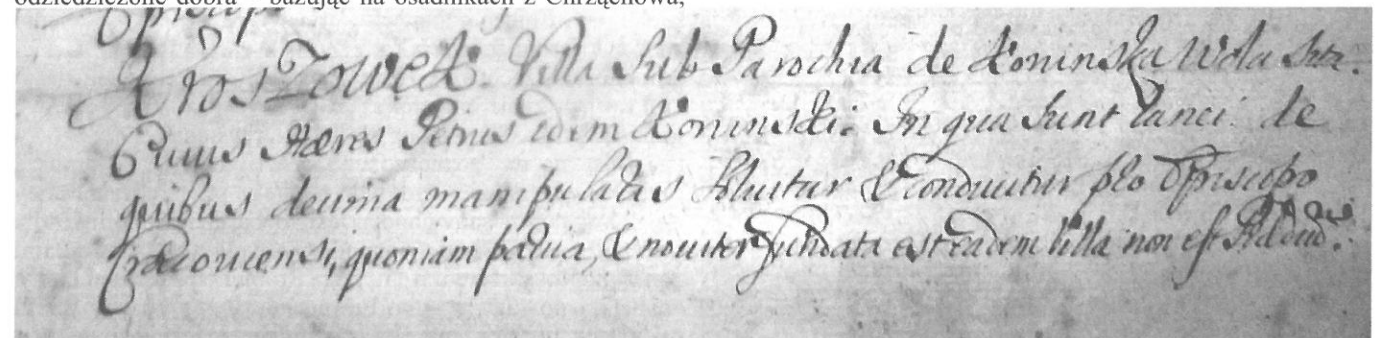 odziedziczone dobra bazując na osadnikach z Chrząchowa,
Episcopo
KrosZoweK. Villa Sub Parochia de Koninska Wola Sita.
Cuius Hæres Petrus idem Koninski. In qua Sunt lanei de
quibus decima manipulatis Soluitur & Conducitur pro Episcopo
Cracouiensi, quoniam parua, & nouiter fundata est eadem Villa non est